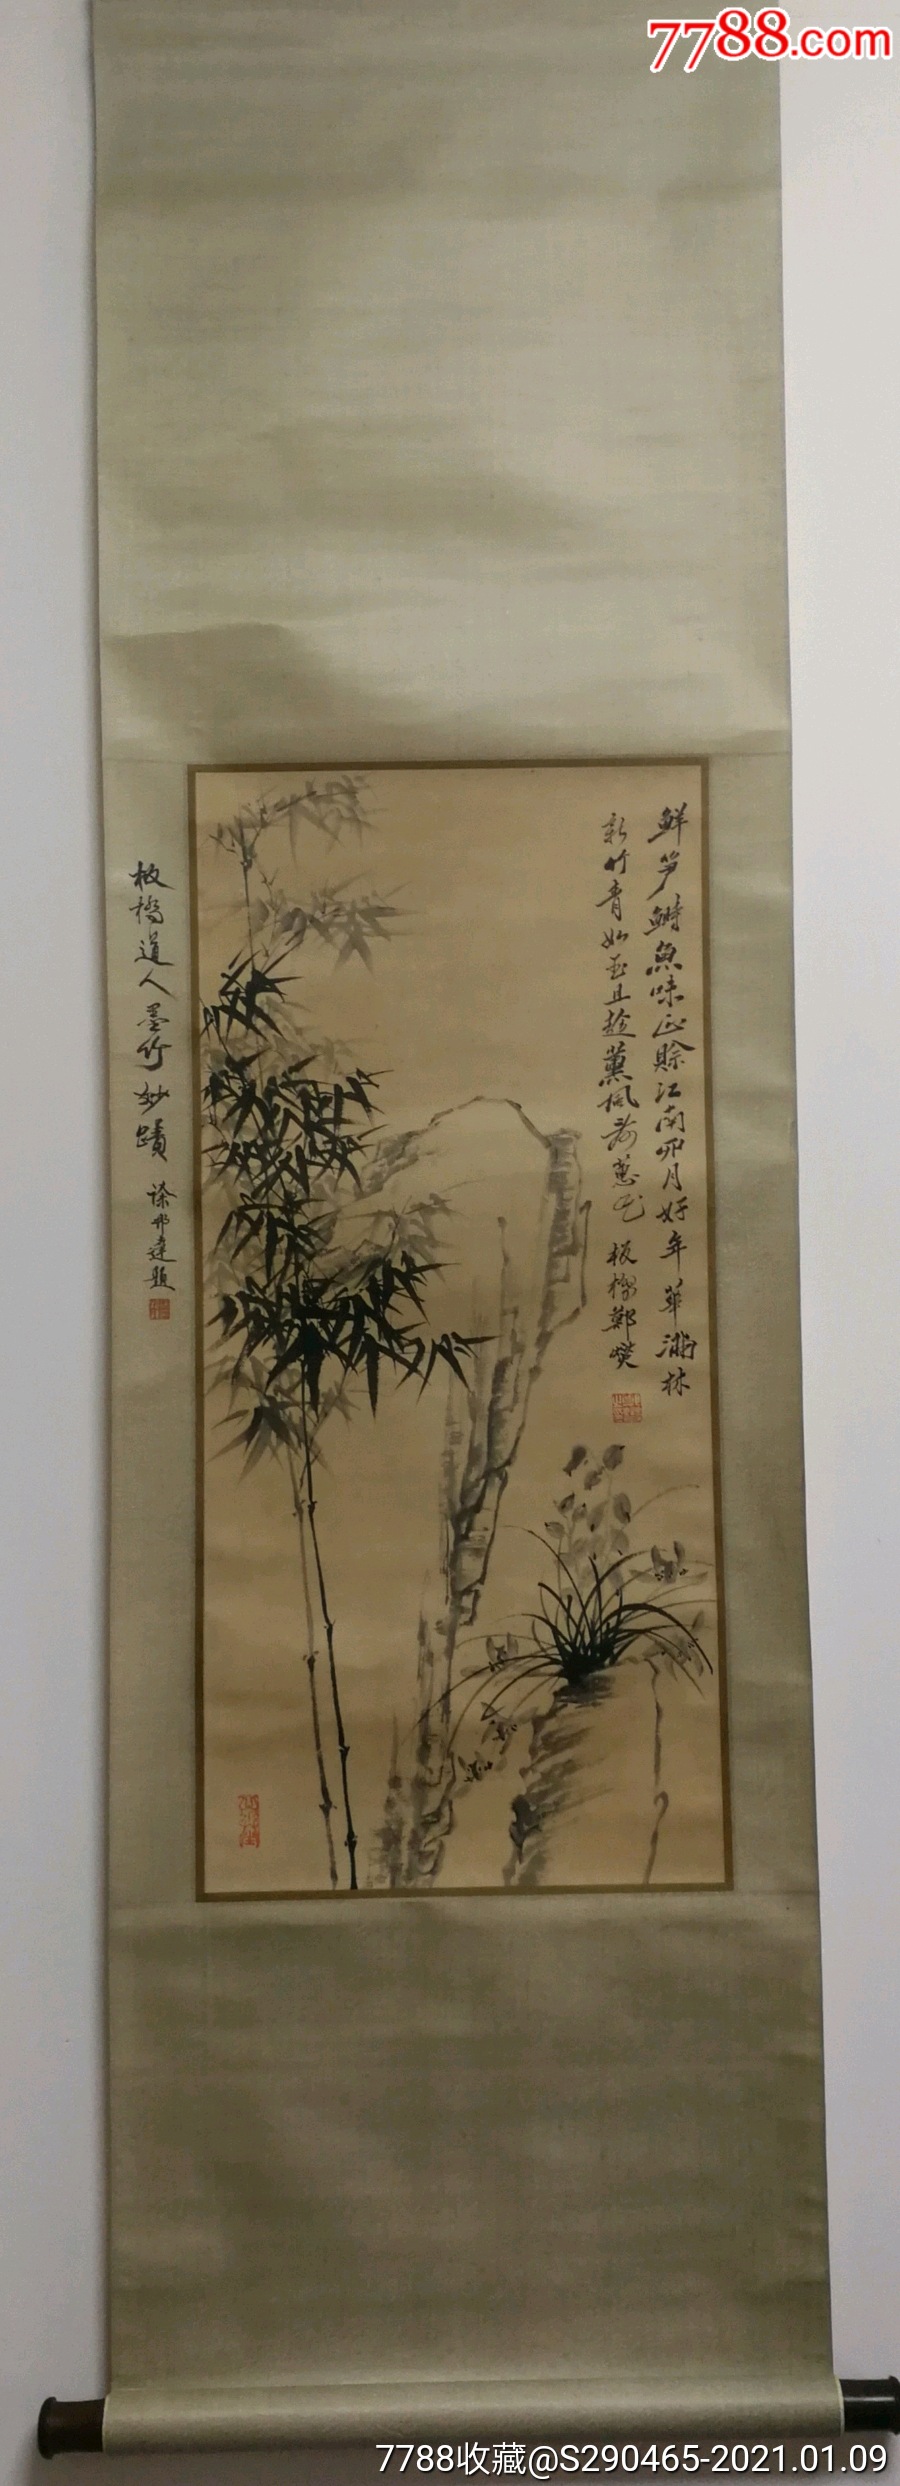 7788.com
鲜笋鲥鱼味正赊江南卯月好年華满林
新竹青如玉且趁薰風洒蕙花 板橋鄭燮
板橋道人墨竹妙蹟 徐邦達題
7788收藏@S290465-2021.01.09